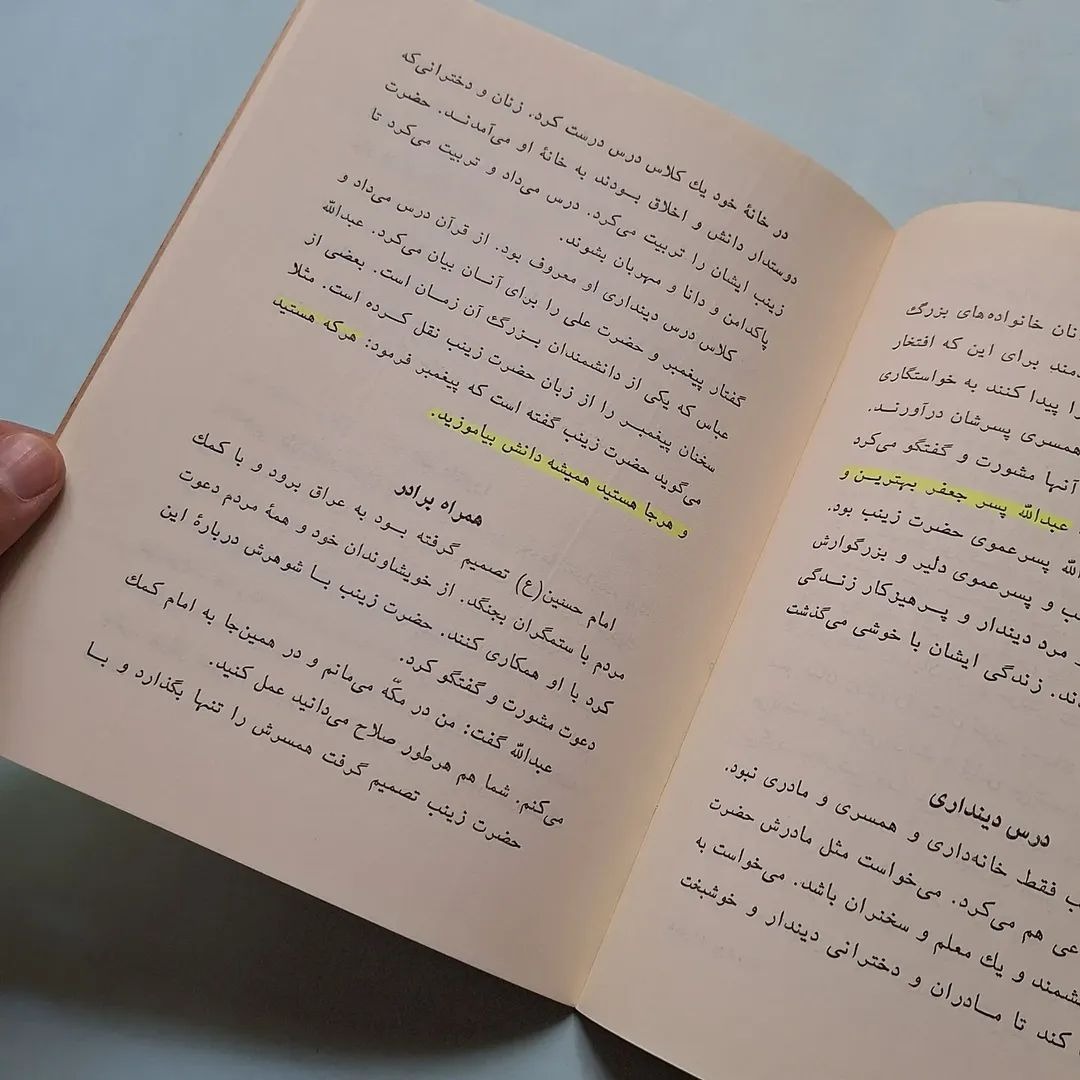 نان خانواده‌های بزرگ
دمند برای این که افتخار
را پیدا کنند به خواستگاری
همسری پسرشان درآورند.
آنها مشورت و گفتگو می‌کرد
عبدالله پسر جعفر بهترین و
الله پسرعموی حضرت زینب بود.
ب و پسرعموی دلیر و بزرگوارش
و مرد دیندار و پرهیزکار زندگی
ند. زندگی ایشان با خوشی می‌گذشت
درس دینداری
ب فقط خانه‌داری و همسری و مادری نبود.
عی هم می‌کرد. می‌خواست مثل مادرش حضرت
شمند و یك معلم و سخنران باشد. می‌خواست به
کند تا مادران و دخترانی دیندار و خوشبخت
در خانهٔ خود یك کلاس درس درست کرد. زنان و دخترانی‌که
دوستدار دانش و اخلاق بودند به خانهٔ او می‌آمدند. حضرت
زینب ایشان را تربیت می‌کرد. درس می‌داد و تربیت می‌کرد تا
پاکدامن و دانا و مهربان بشوند.
کلاس درس دینداری او معروف بود. از قرآن درس می‌داد و
گفتار پیغمبر و حضرت علی را برای آنان بیان می‌کرد. عبدالله
عباس که یکی از دانشمندان بزرگ آن زمان است. بعضی از
سخنان پیغمبر را از زبان حضرت زینب نقل کرده است. مثلا
می‌گوید حضرت زینب گفته است که پیغمبر فرمود: هرکه هستید
و هرجا هستید همیشه دانش بیاموزید.
همراه برادر
امام حسین(ع) تصمیم گرفته بود به عراق برود و با کمك
مردم با ستمگران بجنگد. از خویشاوندان خود و همهٔ مردم دعوت
کرد با او همکاری کنند. حضرت زینب با شوهرش دربارهٔ این
دعوت مشورت و گفتگو کرد.
عبدالله گفت: من در مکّه می‌مانم و در همین‌جا به امام کمك
می‌کنم. شما هم هرطور صلاح می‌دانید عمل کنید.
حضرت زینب تصمیم گرفت همسرش را تنها بگذارد و با